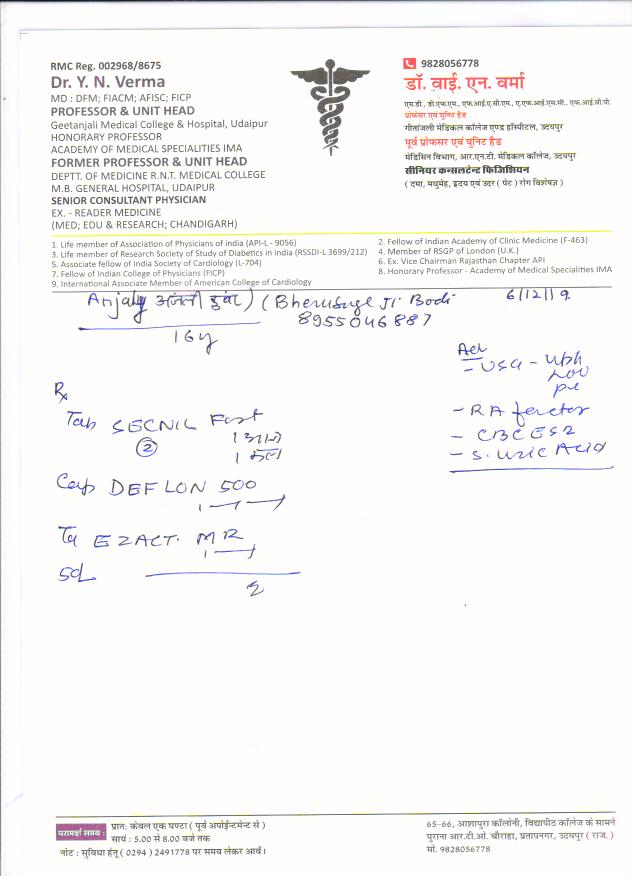 RMC Reg. 002968/8675
Dr. Y. N. Verma
MD : DFM; FIACM; AFISC; FICP
PROFESSOR & UNIT HEAD
Geetanjali Medical College & Hospital, Udaipur
HONORARY PROFESSOR
ACADEMY OF MEDICAL SPECIALITIES IMA
FORMER PROFESSOR & UNIT HEAD
DEPTT. OF MEDICINE R.N.T. MEDICAL COLLEGE
M.B. GENERAL HOSPITAL, UDAIPUR
SENIOR CONSULTANT PHYSICIAN
EX. - READER MEDICINE
(MED; EDU & RESEARCH; CHANDIGARH)
9828056778
डॉ. वाई. एन. वर्मा
एम.डी., डी.एफ.एम., एफ.आई.ए.सी.एम., ए.एफ.आई.एस.सी., एफ.आई.सी.पी.
प्रोफेसर एवं यूनिट हैड
गीतांजली मेडिकल कॉलेज एण्ड हॉस्पीटल, उदयपुर
पूर्व प्रोफसर एवं युनिट हैड
मेडिसिन विभाग, आर.एन.टी. मेडिकल कॉलेज, उदयपुर
सीनियर कन्सलटेन्ट फिजिशियन
( दमा, मधुमेह, हृदय एवं उदर ( पेट ) रोग विशेषज्ञ )
1. Life member of Association of Physicians of india (API-L - 9056)
2. Fellow of Indian Academy of Clinic Medicine (F-463)
3. Life member of Research Society of Study of Diabetics in india (RSSDI-L 3699/212)
4. Member of RSGP of London (U.K.)
5. Associate fellow of India Society of Cardiology (L-704)
6. Ex. Vice Chairman Rajasthan Chapter API
7. Fellow of Indian College of Physicians (FICP)
8. Honorary Professor - Academy of Medical Specialities IMA
9. International Associate Member of American College of Cardiology
Anjaly अंजली कुंवर ) ( Bherusinge Ji Bodi
6/12/19
8955046887
16 y
Adv
- USG -
- RA factor
- CBC ESR
- S. Uric Acid
Rx
Tab SECNIL Fort
2
Cap DEFLON 500
EZACT. MR
प्रातः केवल एक घण्टा ( पूर्व अपोईन्टमेन्ट से )
परामर्श समय :
सायं : 5.00 से 8.00 बजे तक
नोट : सुविधा हेतू ( 0294 ) 2491778 पर समय लेकर आवें।
65-66, आशापुरा कॉलोनी, विद्यापीठ कॉलेज के सामने
पुराना आर.टी.ओ. चौराहा, प्रतापनगर, उदयपुर ( राज. )
मो. 9828056778